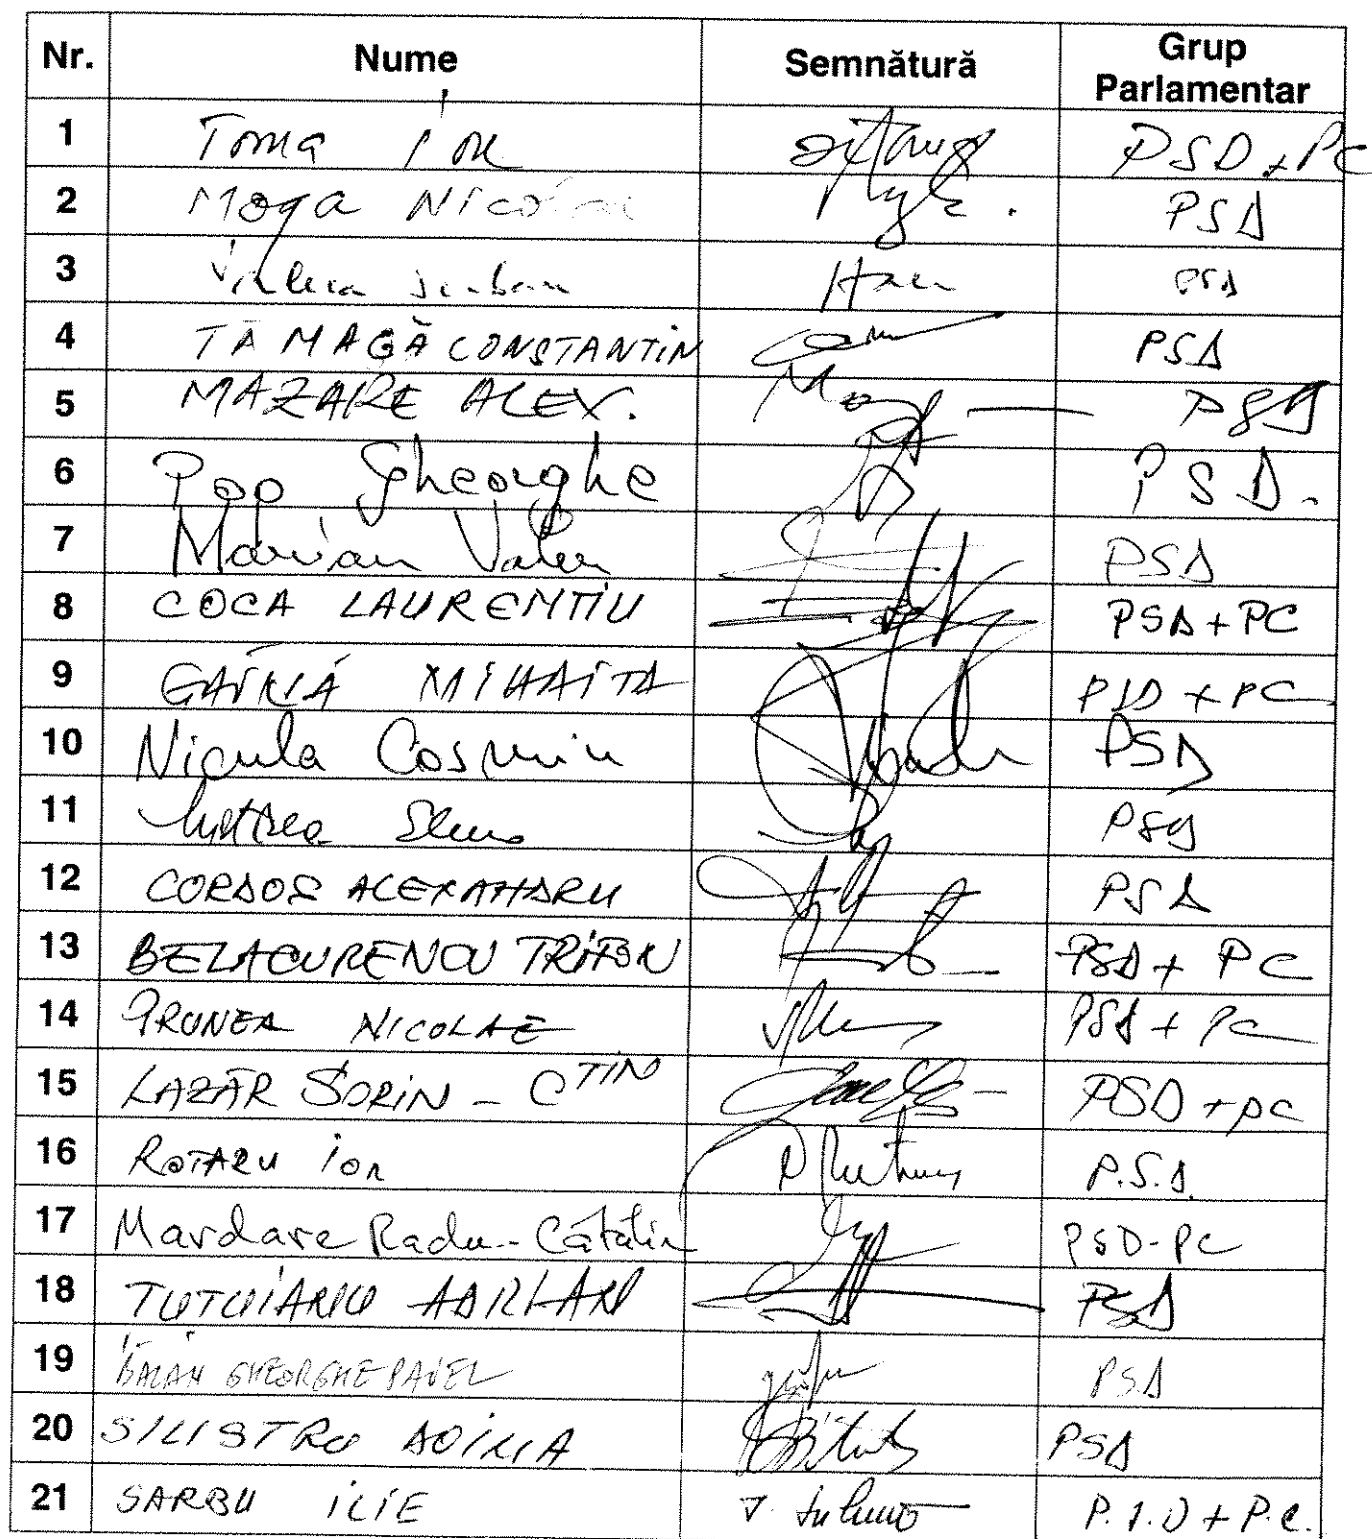 Nr. Nume Semnătură Grup Parlamentar
1 Toma Ion PSD + PC
2 Moga Nicolae PSD
3 Valeca Serban PSD
4 TĂMAGĂ CONSTANTIN PSD
5 MAZARE ALEX. PSD
6 Pop Gheorghe PSD.
7 Marian Valer PSD
8 COCA LAURENTIU PSD + PC
9 GĂINĂ MIHĂIȚĂ PSD + PC
10 Nicula Cosmin PSD
11 PSD
12 CORDOS ALEXANDRU PSD
13 BELACURENCU TRIFON PSD + PC
14 PRUNEA NICOLAE PSD + PC
15 LAZĂR SORIN - CTIN PSD + PC
16 ROTARU Ion P.S.D.
17 Mardare Radu-Cătălin PSD-PC
18 TUTUIANU ADRIAN PSD
19 BALAN GHEORGHE PAVEL PSD
20 SILISTRU DOINA PSD
21 SARBU ILIE P.S.D + P.C.